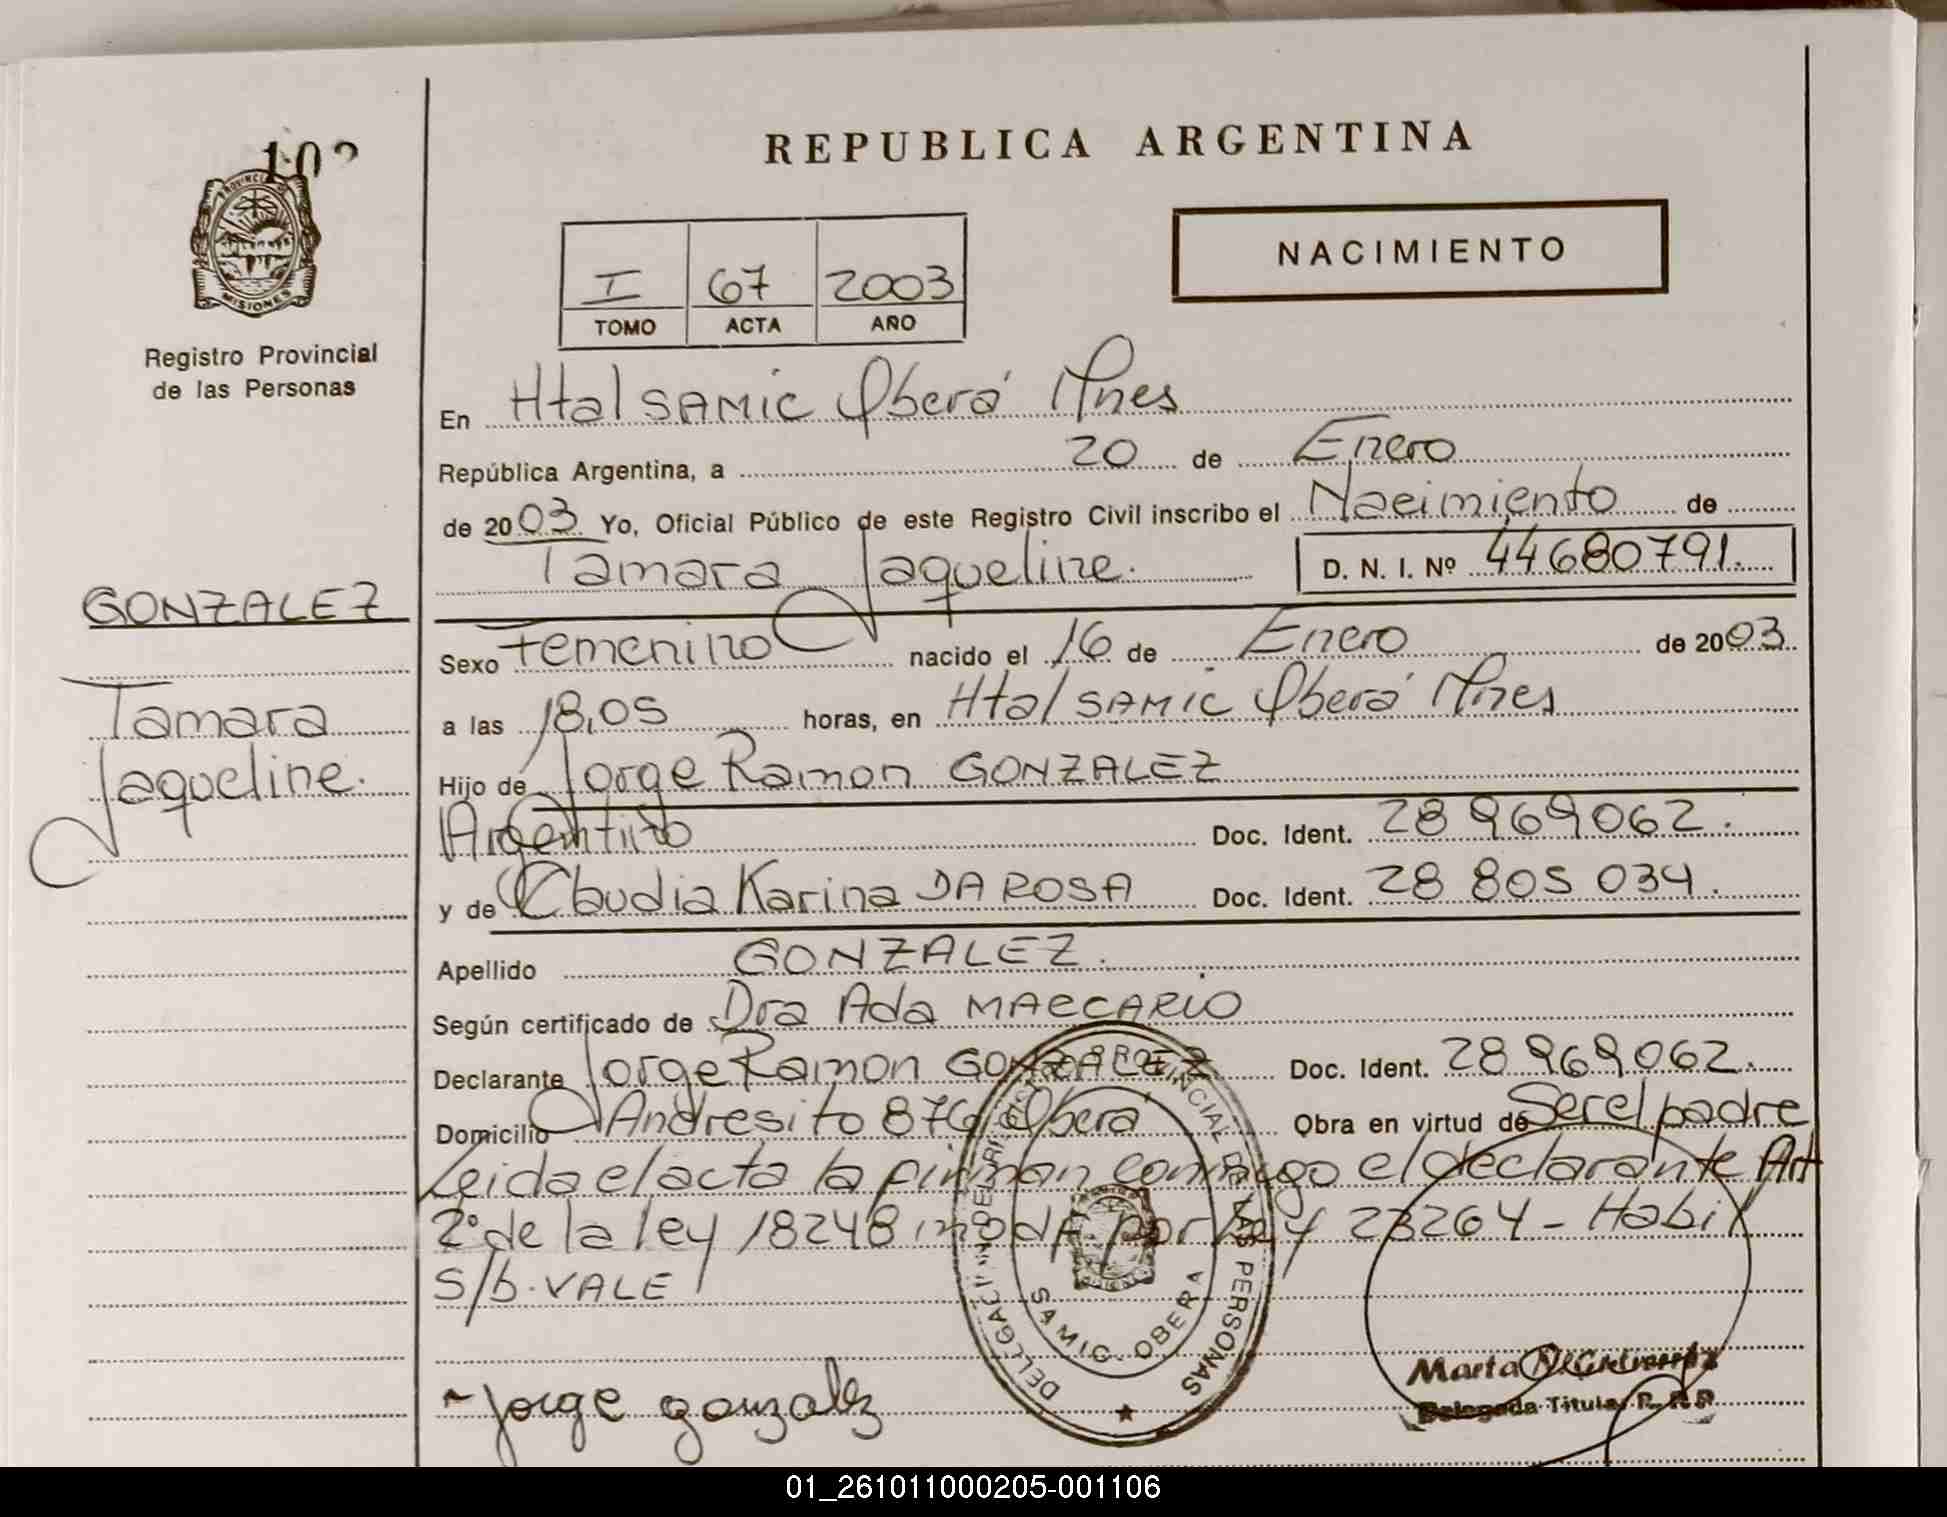 102
PROVINCIA DE
MISIONES
Registro Provincial
de las Personas
GONZALEZ
Tamara
Jaqueline.
REPUBLICA ARGENTINA
I 67 2003
TOMO ACTA AÑO
NACIMIENTO
En Htal SAMIC Oberá Mnes
República Argentina, a 20 de Enero
de 2003 Yo, Oficial Público de este Registro Civil inscribo el Nacimiento de
Tamara Jaqueline. D. N. I. Nº 44680791.
Sexo Femenino nacido el 16 de Enero de 2003
a las 18,05 horas, en Htal SAMIC Oberá Mnes
Hijo de Jorge Ramon GONZALEZ
Argentino Doc. Ident. 28 969062.
y de Claudia Karina DA ROSA Doc. Ident. 28 805 034.
Apellido GONZALEZ.
Según certificado de Dra Ada MACCARIO
Declarante Jorge Ramon GONZALEZ Doc. Ident. 28 969062.
Domicilio Andresito 876 Obera Obra en virtud de Ser el padre
Leida el acta la firman conmigo el declarante Art
2° de la ley 18248 modf por ley 23264 - Habil
S/b. VALE
PROVINCIAL DE LAS PERSONAS
SAMIC. OBERA
Jorge gonzalez
Marta
Delegada Titular R. P. P
01_261011000205-001106